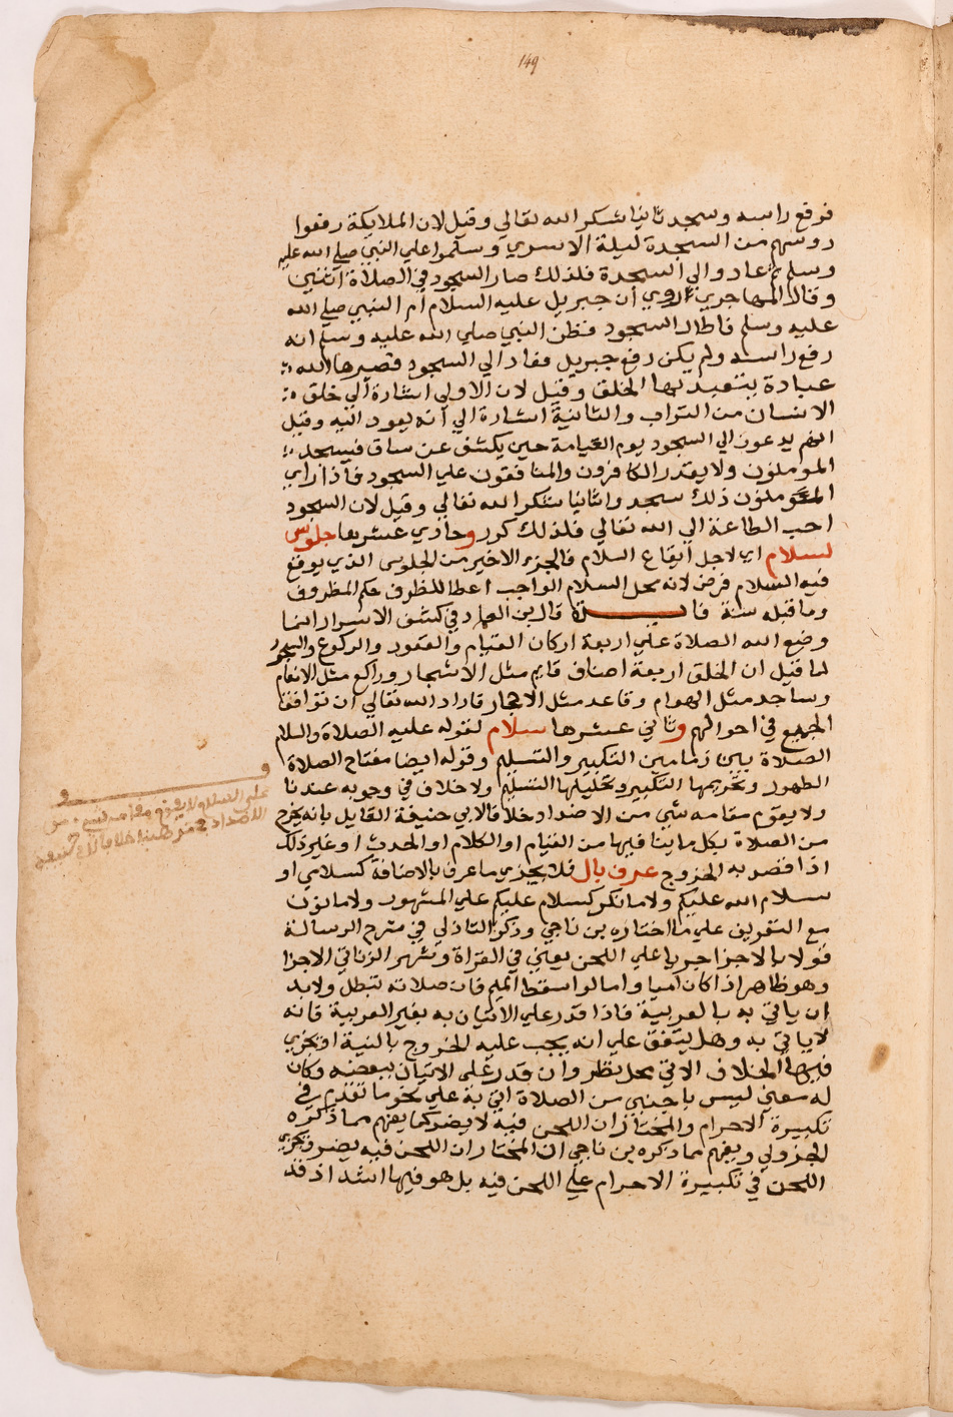 149
فرفع راسه وسجد ثانيا شكرا لله تعالي وقيل لان الملايكة رفعوا
روسهم من السجدة ليلة الاسري وسلموا علي النبي صلي الله عليه
وسلم ثم عادوا الي السجدة فلذلك صار السجود في الصلاة اثنين
وقال المهاجري روي أن جبريل عليه السلام أم النبي صلي الله
عليه وسلم فاطال السجود فظن النبي صلي الله عليه وسلم انه
رفع راسه ولم يكن رفع جبريل فعاد الي السجود فصيرها الله
عبادة يتعبد بها الخلق وقيل لان الاولي اشارة الي خلق
الانسان من التراب والثانية اشارة الي أنه يعود اليه وقيل
انهم يدعون الي السجود يوم القيامة حين يكشف عن ساق فيسجد
المومنون ولا يقدر الكافرون والمنافقون علي السجود فاذا راي
المومنون ذلك سجدوا ثانيا شكرا لله تعالي وقيل لان السجود
احب الطاعة الي الله تعالي فلذلك كرر وحادي عشرها جلوس
لسلام اي لاجل ايقاع السلام فالجزء الاخير من الجلوس الذي يوقع
فيه السلام فرض لانه محل السلام الواجب اعطا للظرف حكم المظروف
وما قبله سنة فايدة قال بن العماد في كشف الاسرار انما
وضع الله الصلاة علي اربعة اركان القيام والقعود والركوع والسجود
لما قيل ان الخلق اربعة اصناف قايم مثل الاشجار وراكع مثل الانعام
وساجد مثل الهوام وقاعد مثل الاحجار فاراد الله تعالي ان توافقا
الجميع في احوالهم وثاني عشرها سلام لقوله عليه الصلاة والسلام
الصلاة بين زمامين التكبير والتسليم وقوله ايضا مفتاح الصلاة
الطهور وتحريمها التكبير وتحليلها التسليم ولا خلاف في وجوبه عندنا
ولا يقوم مقامه شي من الاضداد خلافا لابي حنيفة القايل بانه يخرج
من الصلاة بكل ما ينافيها من القيام او الكلام او الحدث او غير ذلك
اذا قصد به الخروج عرف بال فلا يجزي ما عرف بالاضافة كسلامي او
سلام الله عليكم ولا ما نكر كسلام عليكم علي المشهور ولا ما نون
مع التعريف علي ما اختاره بن ناجي وذكر التادلي في شرح الرسالة
قولا بالاجزا جريا علي اللحن يعني في القراة وشهر الزناتي الاجزا
وهو ظاهر اذا كان اميا واما لو اسقط الميم فان صلاته تبطل ولا بد
ان ياتي به بالعربية فاذا قدر علي الاتيان به بغير العربية فانه
لا ياتي به وهل يتفق علي انه يجب عليه الخروج بالنية او يجزي
فيها الخلاف الاتي محل نظر وان قدر علي الاتيان ببعضه وكان
له معني ليس باجنبي من الصلاة اتي به علي نحو ما تقدم في
تكبيرة الاحرام والمختار ان اللحن فيه لا يضر كما يفهم مما ذكره
الجزولي ويفهم مما ذكره بن ناجي ان المختار ان اللحن فيه يضر ويجري
اللحن في تكبيرة الاحرام علي اللحن فيه بل هو فيها اشد اذ قد
علي السلام ولا يقوم مقامه شي من
الاضداد